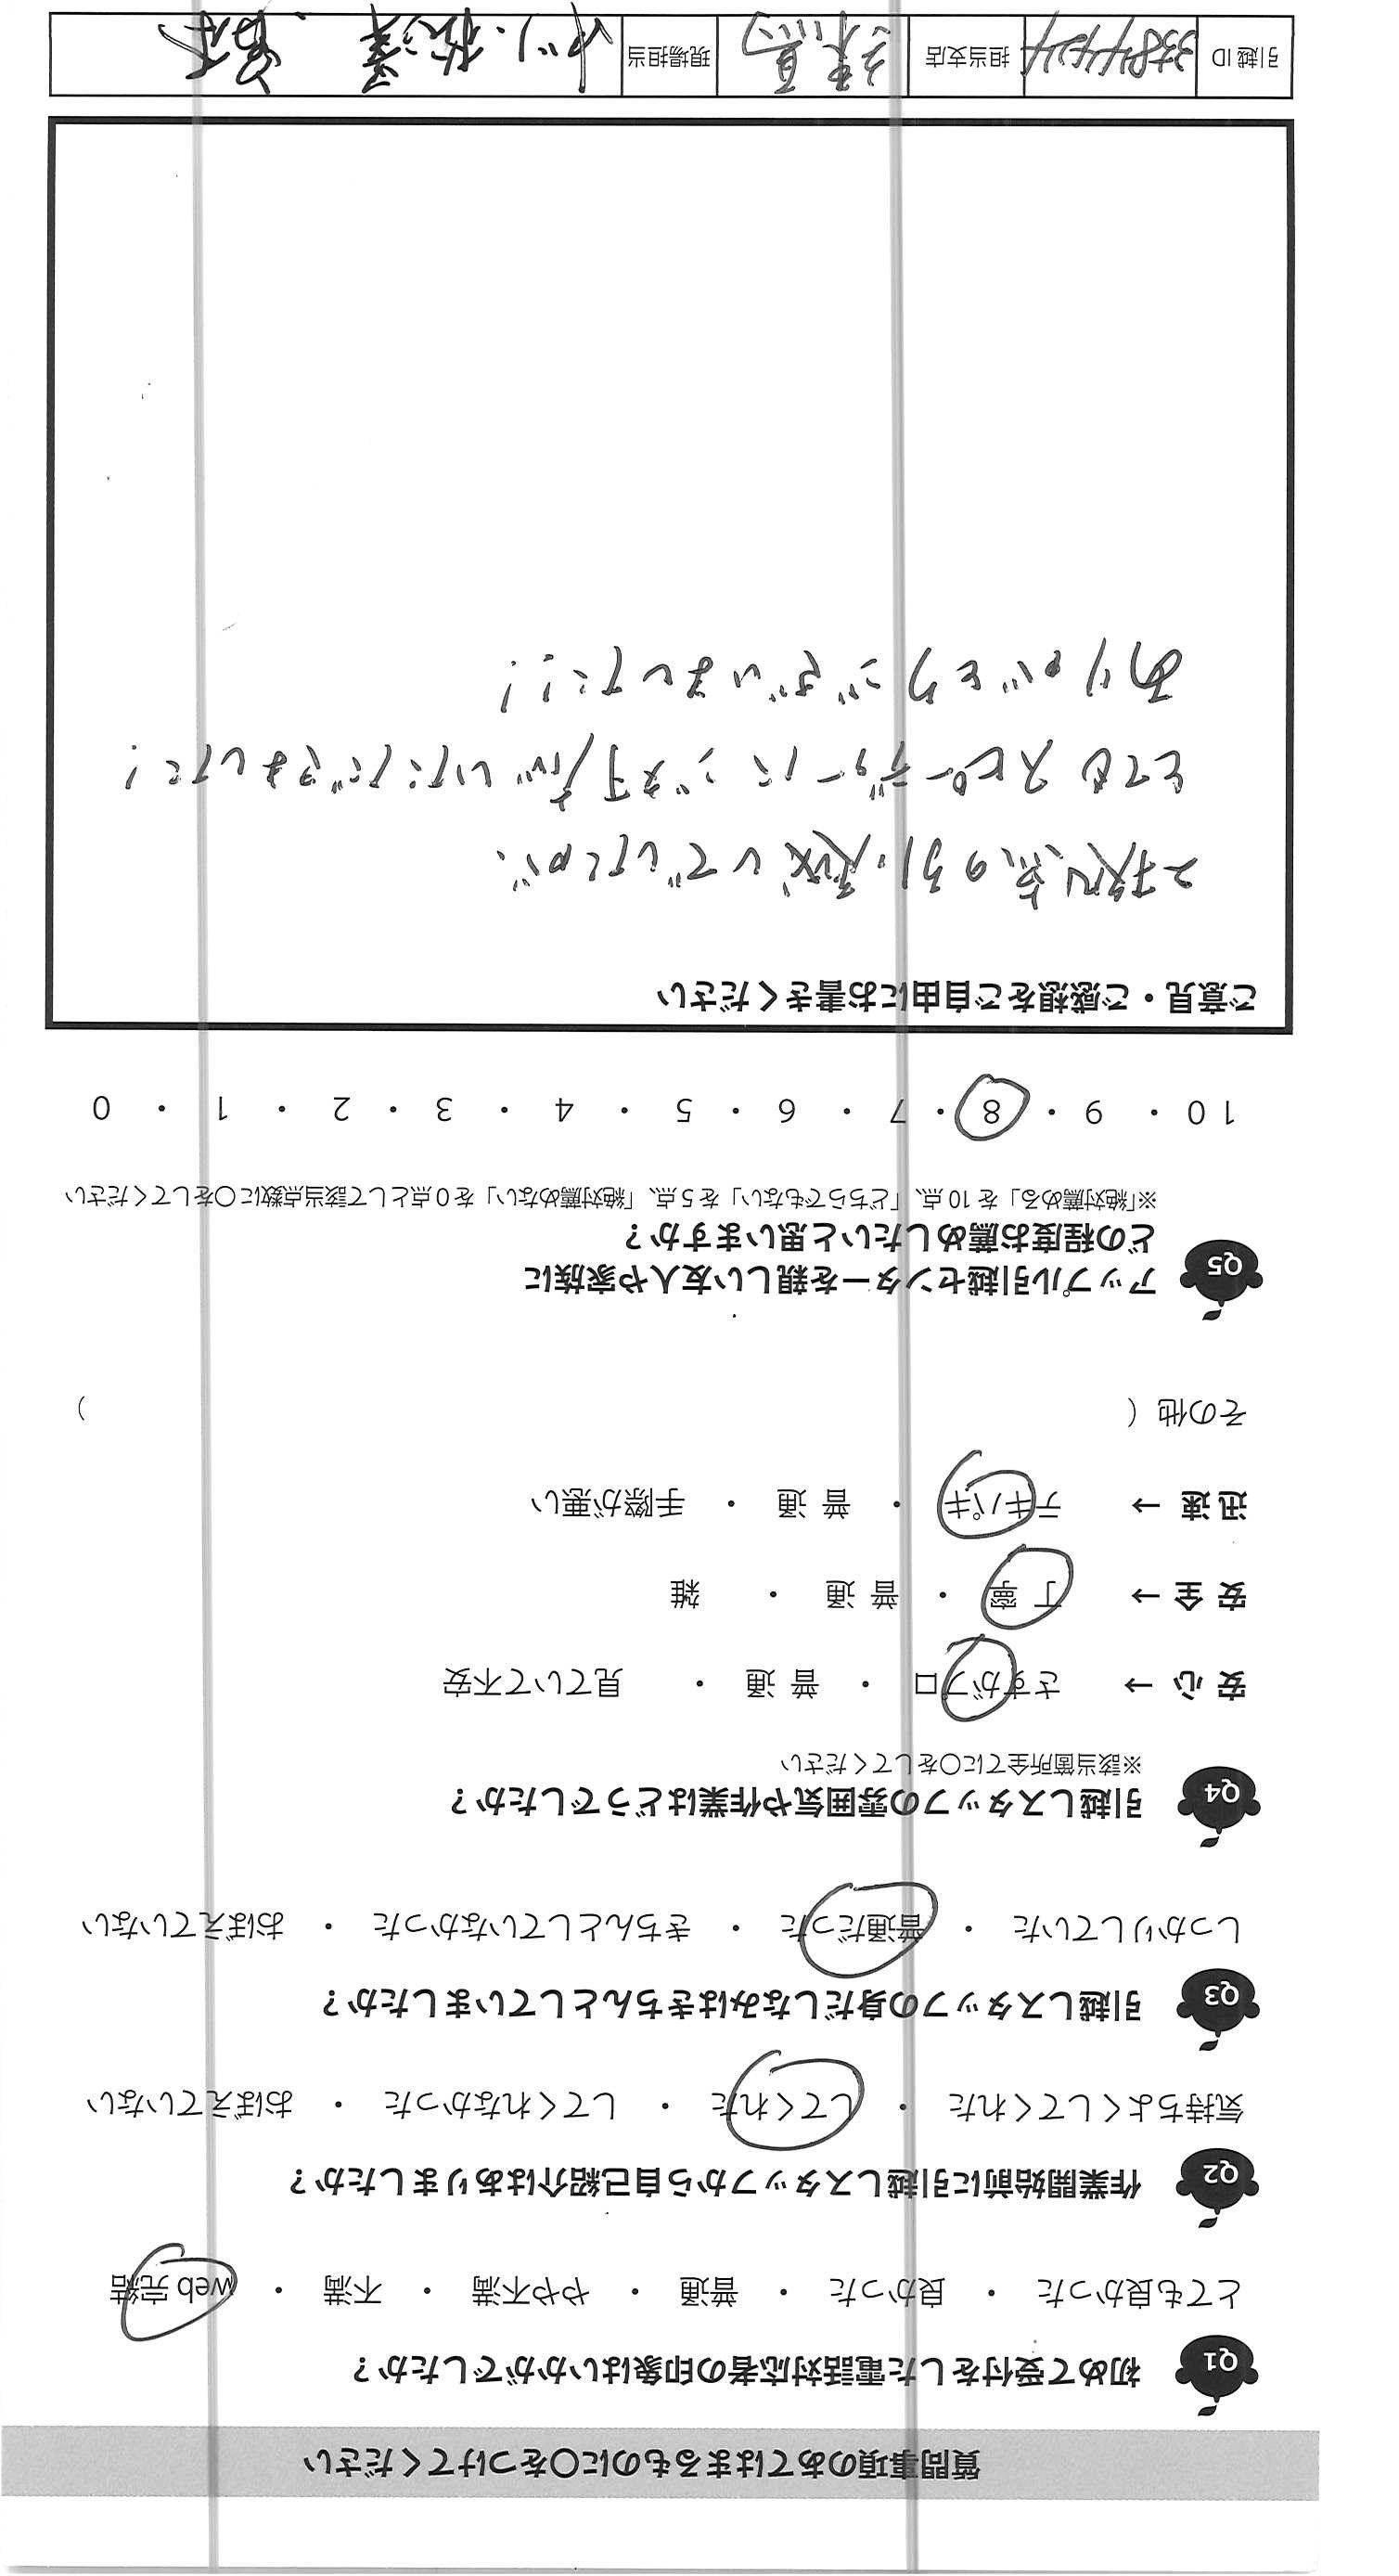 質問事項のあてはまるものに〇をつけてください
Q1 初めて受付をした電話対応者の印象はいかがでしたか？
とても良かった ・ 良かった ・ 普通 ・ やや不満 ・ 不満 ・ web 完結
Q2 作業開始前に引越しスタッフから自己紹介はありましたか？
気持ちよくしてくれた ・ してくれた ・ してくれなかった ・ おぼえていない
Q3 引越しスタッフの身だしなみはきちんとしていましたか？
しっかりしていた ・ 普通だった ・ きちんとしていなかった ・ おぼえていない
Q4 引越しスタッフの雰囲気や作業はどうでしたか？
※該当箇所全てに〇をしてください
安 心 → さすがプロ ・ 普 通 ・ 見ていて不安
安 全 → 丁 寧 ・ 普 通 ・ 雑
迅 速 → テキパキ ・ 普 通 ・ 手際が悪い
その他（ ）
Q5 アップル引越センターを親しい友人や家族に
どの程度お薦めしたいと思いますか？
※「絶対薦める」を 10 点、「どちらでもない」を 5 点、「絶対薦めない」を 0 点として該当点数に〇をしてください
10 ・ 9 ・ 8 ・ 7 ・ 6 ・ 5 ・ 4 ・ 3 ・ 2 ・ 1 ・ 0
ご意見・ご感想をご自由にお書きください
2拠点の引越しでしたが、
とてもスピーディーにご対応いただきました！
ありがとうございました！！
引越 ID 3384424 担当支店 練馬 現場担当